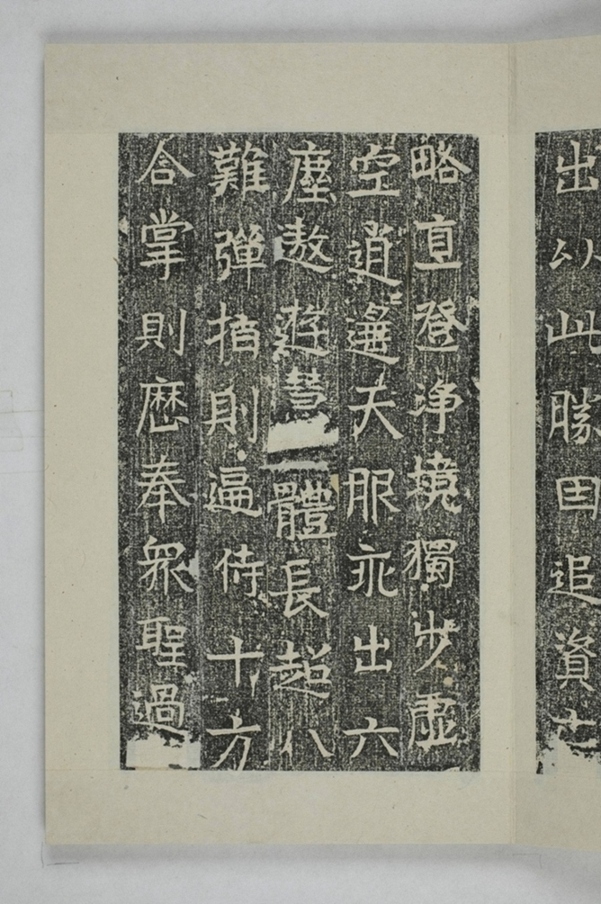 出以此勝因追資亡
略直登淨境獨步虛
空逍遥天服永出六
塵遨遊慧體長超八
難彈指則遍侍十方
合掌則歷奉眾聖過